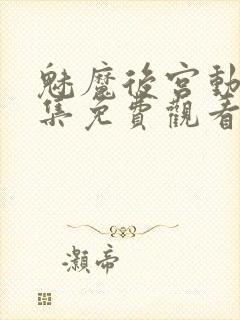 魅魔後宮動
集免費觀看
灝帝